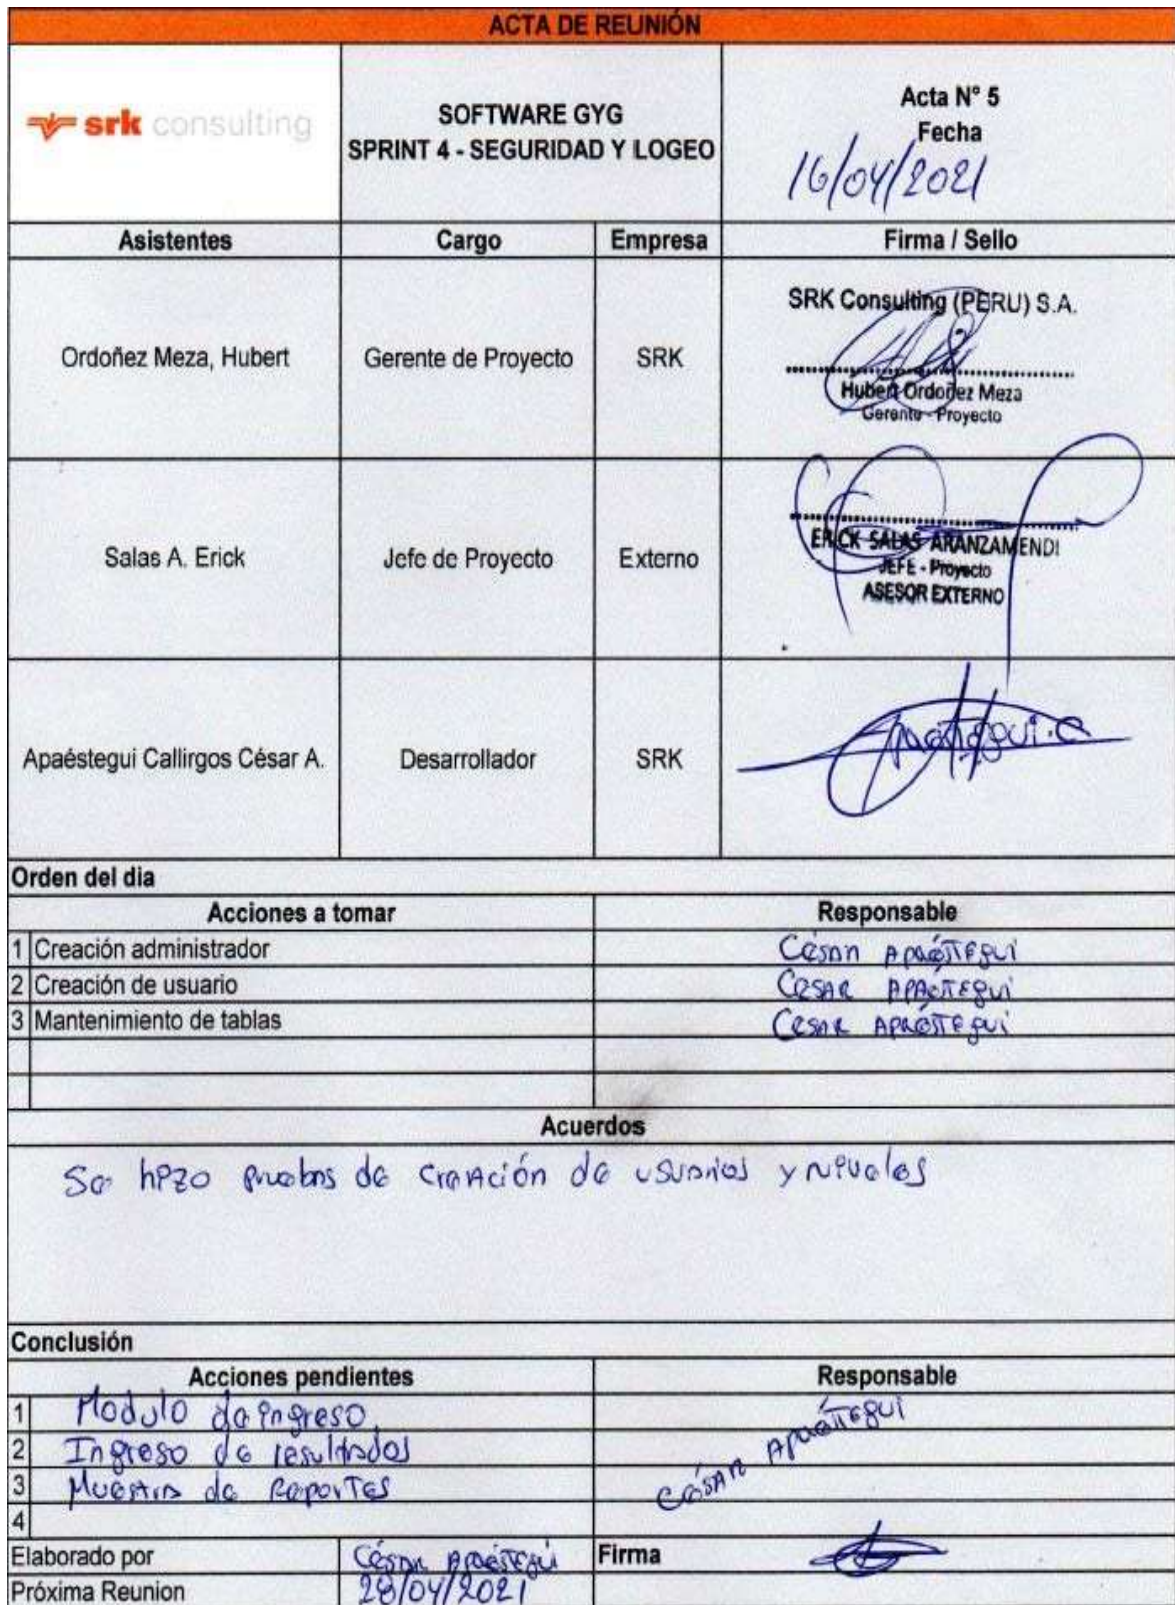 ACTA DE REUNIÓN
srk consulting
SOFTWARE GYG
SPRINT 4 - SEGURIDAD Y LOGEO
Acta N° 5
Fecha
16/04/2021
Asistentes Cargo Empresa Firma / Sello
Ordoñez Meza, Hubert Gerente de Proyecto SRK
SRK Consulting (PERU) S.A.
Hubert Ordoñez Meza
Gerente - Proyecto
Salas A. Erick Jefe de Proyecto Externo
ERICK SALAS ARANZAMENDI
JEFE - Proyecto
ASESOR EXTERNO
Apaéstegui Callirgos César A. Desarrollador SRK
Apaéstegui.C
Orden del dia
Acciones a tomar Responsable
1 Creación administrador César Apaéstegui
2 Creación de usuario Cesar Apaéstegui
3 Mantenimiento de tablas Cesar Apaéstegui
Acuerdos
Se hizo pruebas de creación de usuarios y niveles
Conclusión
Acciones pendientes Responsable
1 Modulo de ingreso
2 Ingreso de resultados
3 Muestra de Reportes
César Apaéstegui
4
Elaborado por César Apaéstegui Firma
Próxima Reunion 28/04/2021